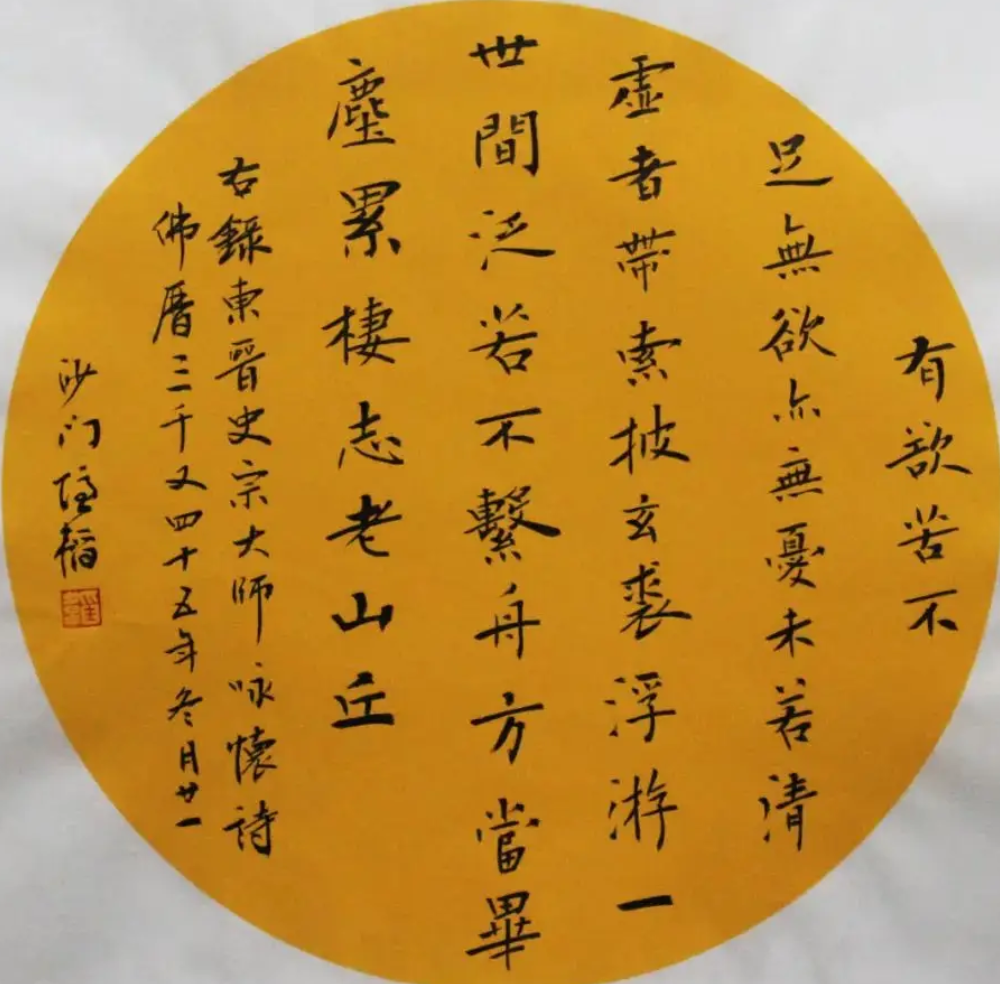 有欲苦不
足無欲亦無憂未若清
虛者帶索披玄裘浮游一
世間泛若不繫舟方當畢
塵累棲志老山丘
右錄東晉史宗大師咏懷詩
佛曆三千又四十五年冬月廿一
沙门